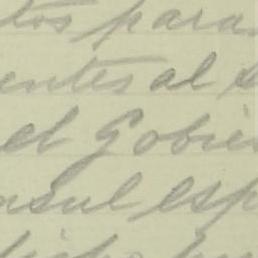 tos para
entes al s
el Gobie
nsul esp